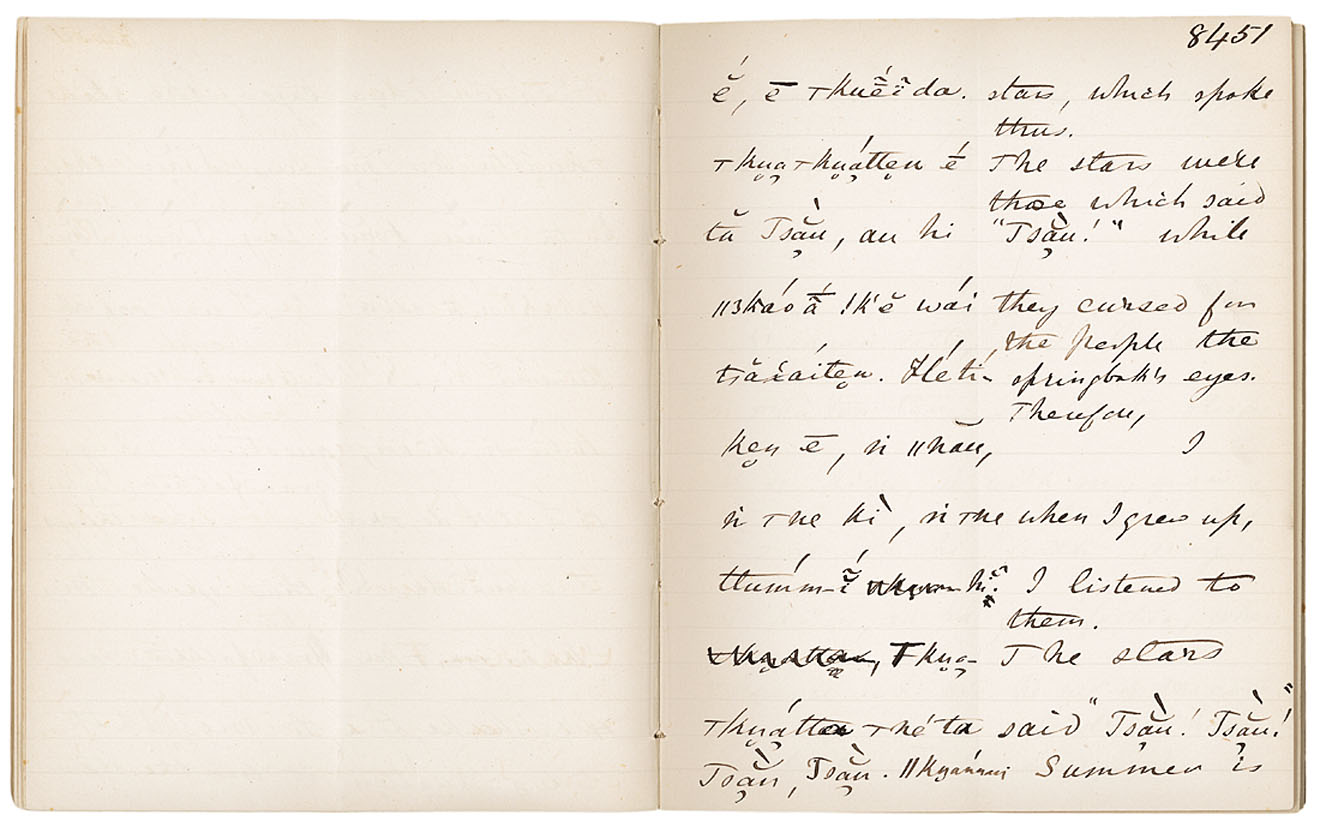 8451
ĕ́, ē ⊤kuḗĭ da. stars, which spoke
thus.
⊤ku̥a̤ ⊤ku̥átte̥n ḗ The stars were
those which said
tā̆ Tsằ̤u, au hi "Tsằ̤u!" while
ǁʒkáo ā́ !k'ĕ wái they cursed for
the people the
tsăx̱áite̥n. Ḣé ti- springbok's eyes.
Therefore,
ke̥n ē, ń ǁnā̆u, I
ń ⊤ne kì, ń ⊤ne when I grew up,
ttúmm-ĭ̃́ hĭ̃. I listened to
them.
⊤ku̥a̤- The stars
⊤ku̥átten ⊤né ta said "Tsằ̤u! Tsằ̤u!"
Tsằ̤u, Tsằ̤u. ǁku̥ánnai Summer is